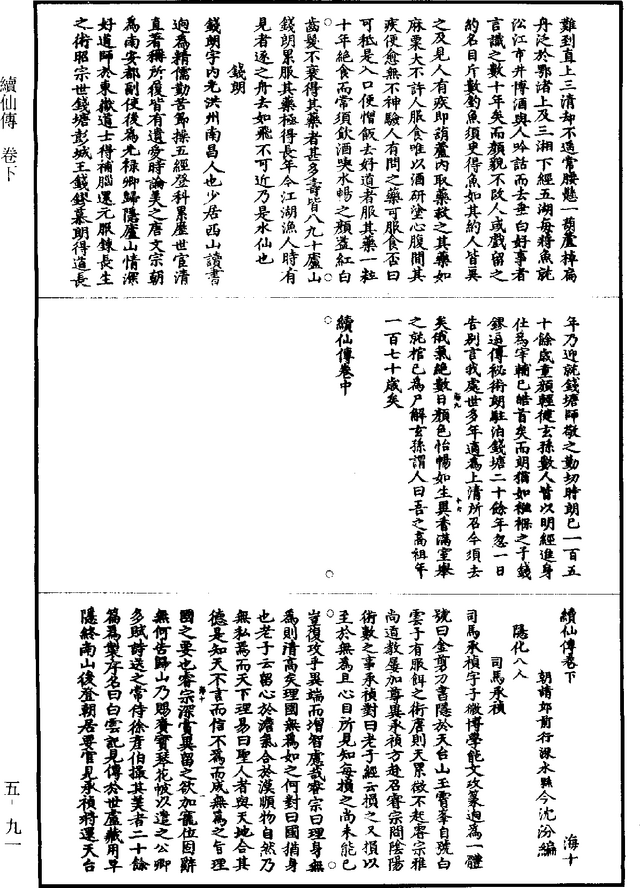 續仙傳 卷下
難到直上三清却不遙常腰懸一葫蘆棹扁
舟泛於鄂渚上及三湘下經五湖每將魚就
淞江市井博酒與人吟話而去垂白好事者
言識之數十年矣而顏貌不改人或戲留之
約名目斤數釣魚須臾得魚如其約人皆異
之及見人有疾即葫蘆內取藥救之其藥如
麻粟大不許人服食唯以酒研塗心腹間其
疾便愈無不神驗人有問之藥可服食否曰
可秖是入口便憎飯去好道者服其藥一粒
十年絕食而常須飲酒啖水暢之顏益紅白
齒髮不衰得其藥者甚多壽皆八九十廬山
錢朗累服其藥極得長年今江湖漁人時有
見者逐之舟去如飛不可近乃是水仙也
錢朗
錢朗字內光洪州南昌人也少居西山讀書
迥為精儒勤苦節操五經登科累歷世官清
直著稱所復皆有遺愛時論美之唐文宗朝
為南安都副使後為光祿卿歸隱廬山情深
好道師於東嶽道士得補腦還元服鍊長生
之術昭宗世錢塘彭城王錢鏐慕朗得道長
年乃迎就錢塘師敬之勤切時朗已一百五
十餘歲童顏輕健玄孫數人皆以明經進身
仕為宰輔已皓首矣而朗猶如襁褓之子錢
鏐逼傳祕術朗駐泊錢塘二十餘年忽一日
告別言我處世多年適為上清所召今須去
矣俄氣絕數日顏色怡暢如生異香滿室舉
之就棺已為尸解玄孫謂人曰吾之高祖年
一百七十歲矣
續仙傳卷中
續仙傳卷下 海十
朝請郎前行溧水縣令沈汾編
隱化八人
司馬承禎
司馬承禎字子微博學能文攻篆迥為一體
號曰金剪刀書隱於天台山玉霄峯自號白
雲子有服餌之術唐則天累徵不起睿宗雅
尚道教屢加尊異承禎方赴召睿宗問陰陽
術數之事承禎對曰老子經云損之又損以
至於無為且心目所見知每損之尚未能已
豈復攻乎異端而增智慮哉睿宗曰理身無
為則清高矣理國無為如之何對曰國猶身
也老子云留心於澹氣合於漠順物自然乃
無私焉而天下理易曰聖人者與天地合其
德是知天不言而信不為而成無為之旨理
國之要也睿宗深賞異留之欲加寵位固辭
無何告歸山乃賜寶琴花帔以遣之公卿
多賦詩送之常侍徐彥伯撮其美者三十餘
篇為製序名曰白雲記見傳於世盧藏用早
隱終南山後登朝居要官見承禎將還天台
五-九一